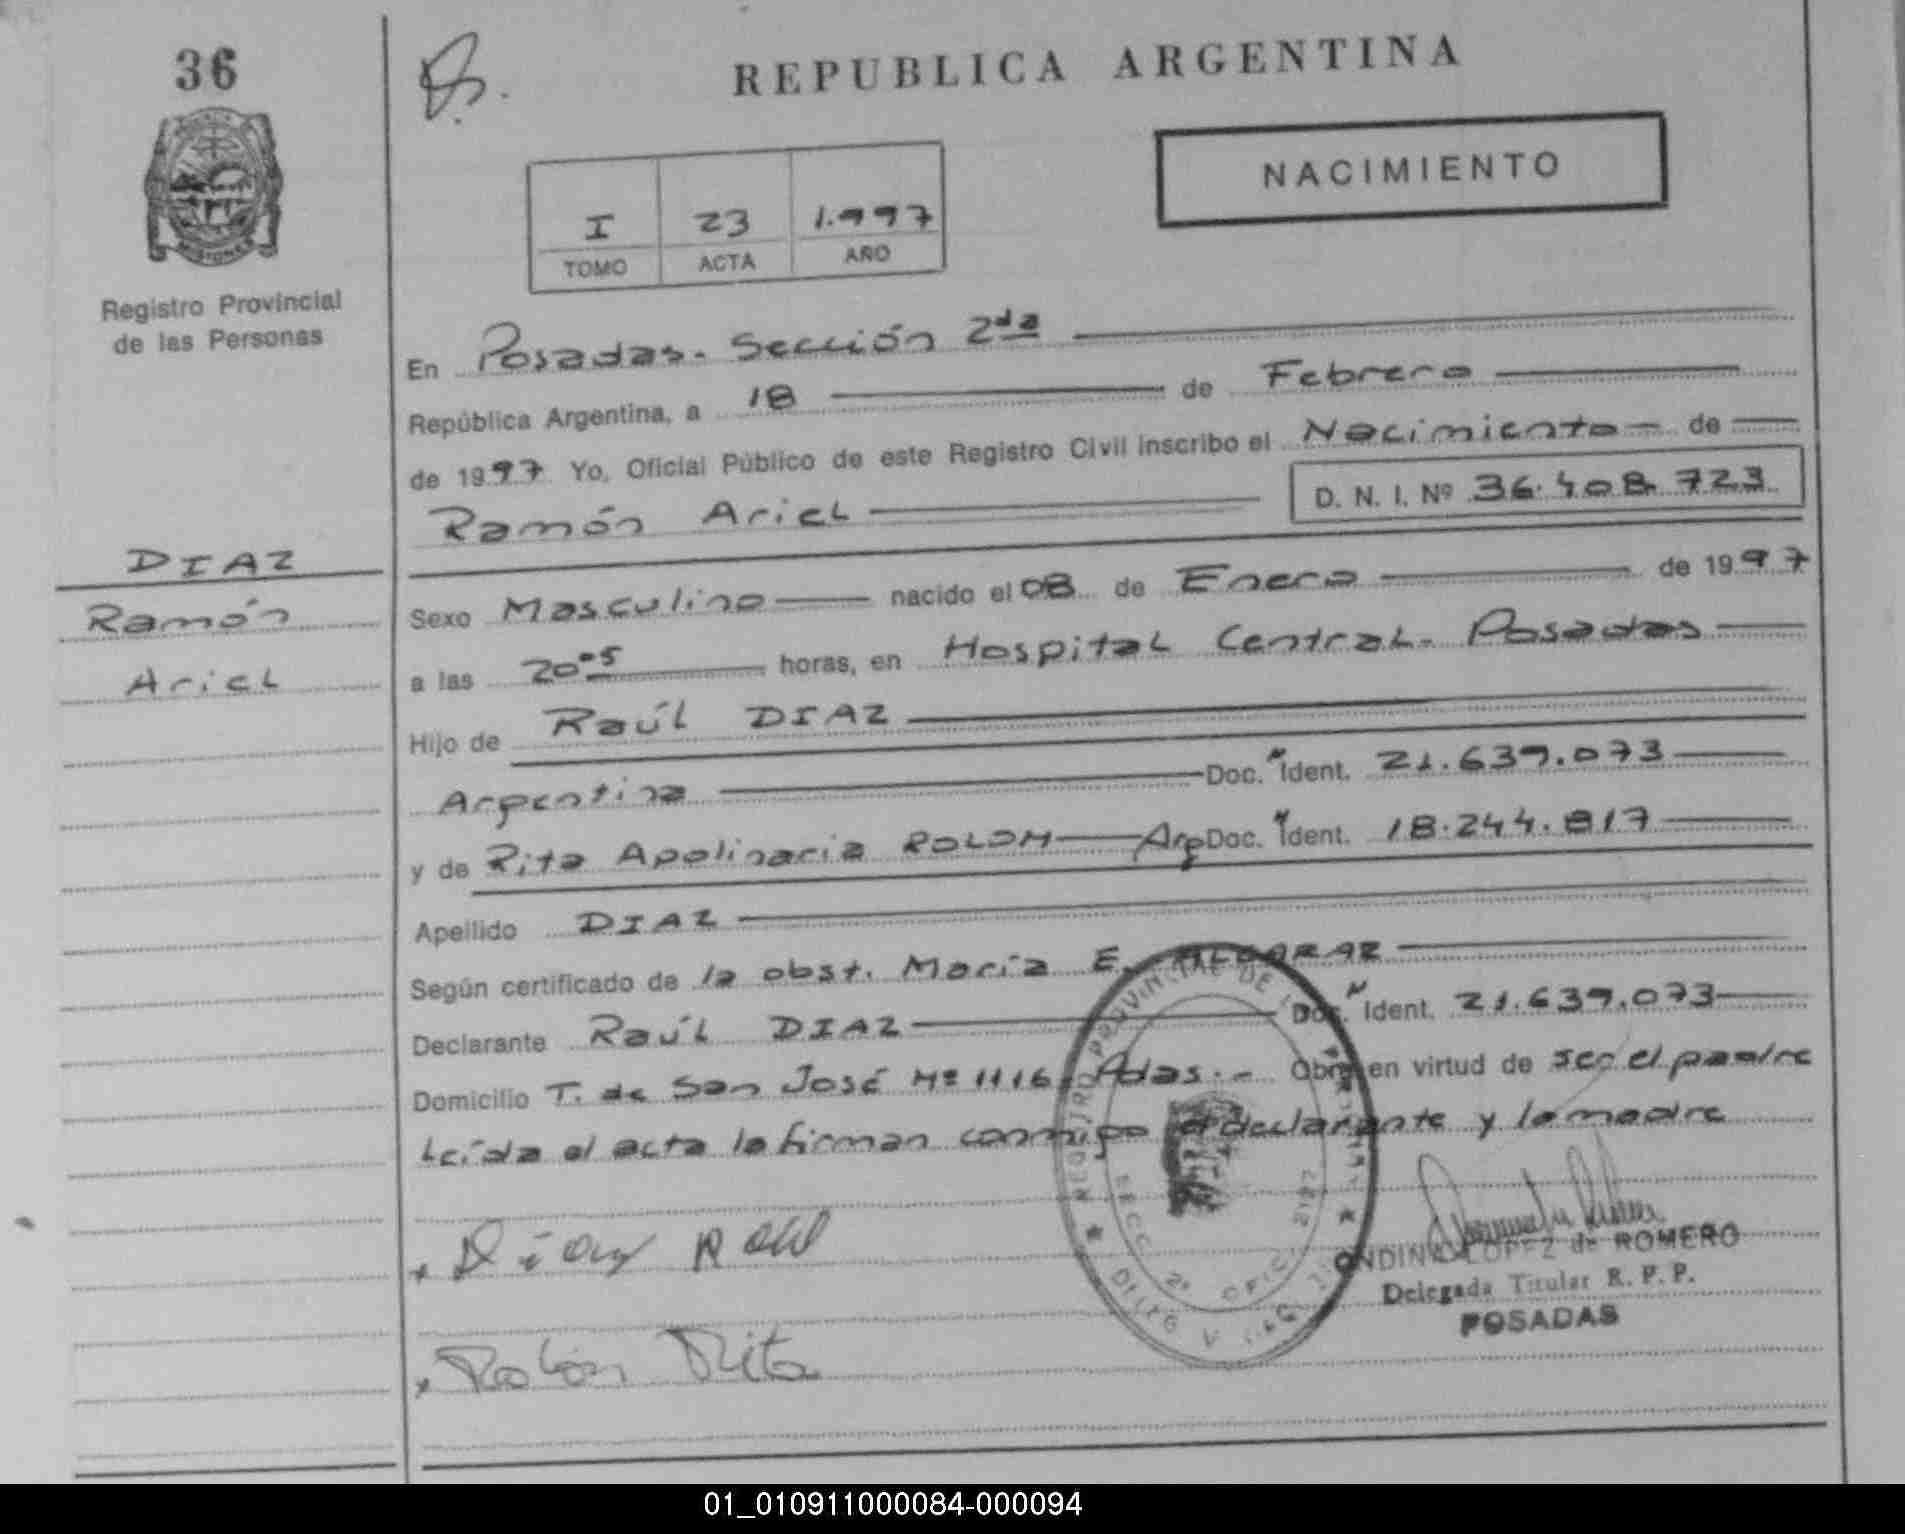 36
REPUBLICA ARGENTINA
NACIMIENTO
I 23 1.997
TOMO ACTA AÑO
MISIONES
Registro Provincial
de las Personas
En Posadas. Sección 2da
República Argentina, a 18 de Febrero
de 1997 Yo, Oficial Público de este Registro Civil inscribo el Nacimiento de
Ramón Ariel D. N. I. Nº 36.408.723
DIAZ
Ramón
Ariel
Sexo Masculino nacido el 08 de Enero de 1997
a las 20:05 horas, en Hospital Central. Posadas
Hijo de Raúl DIAZ
Argentina Doc. Ident. 21.639.073
y de Rita Apolinaria ROLON Arg Doc. Ident. 18.244.817
Apellido DIAZ
Según certificado de la obst. María E. ALCARAZ
Declarante Raúl DIAZ Doc. Ident. 21.639.073
Domicilio T. de San José Nº 1116, Pdas.- Obra en virtud de ser el padre
Leída el acta la firman conmigo el declarante y la madre
REGISTRO PROVINCIAL DE
SECC. 2ª OFIC.
x Diaz Raul
ONDINA LOPEZ de ROMERO
Delegada Titular R. P. P.
POSADAS
x Rolón Rita
01_010911000084-000094